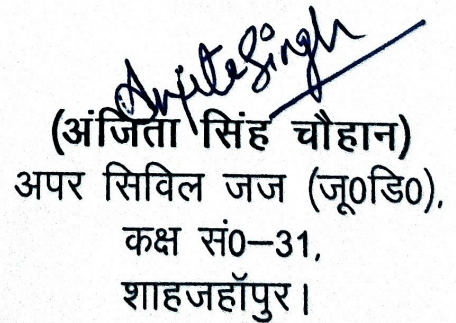 Anjita Singh
(अंजिता सिंह चौहान)
अपर सिविल जज (जू0डि0),
कक्ष सं0–31,
शाहजहॉपुर।